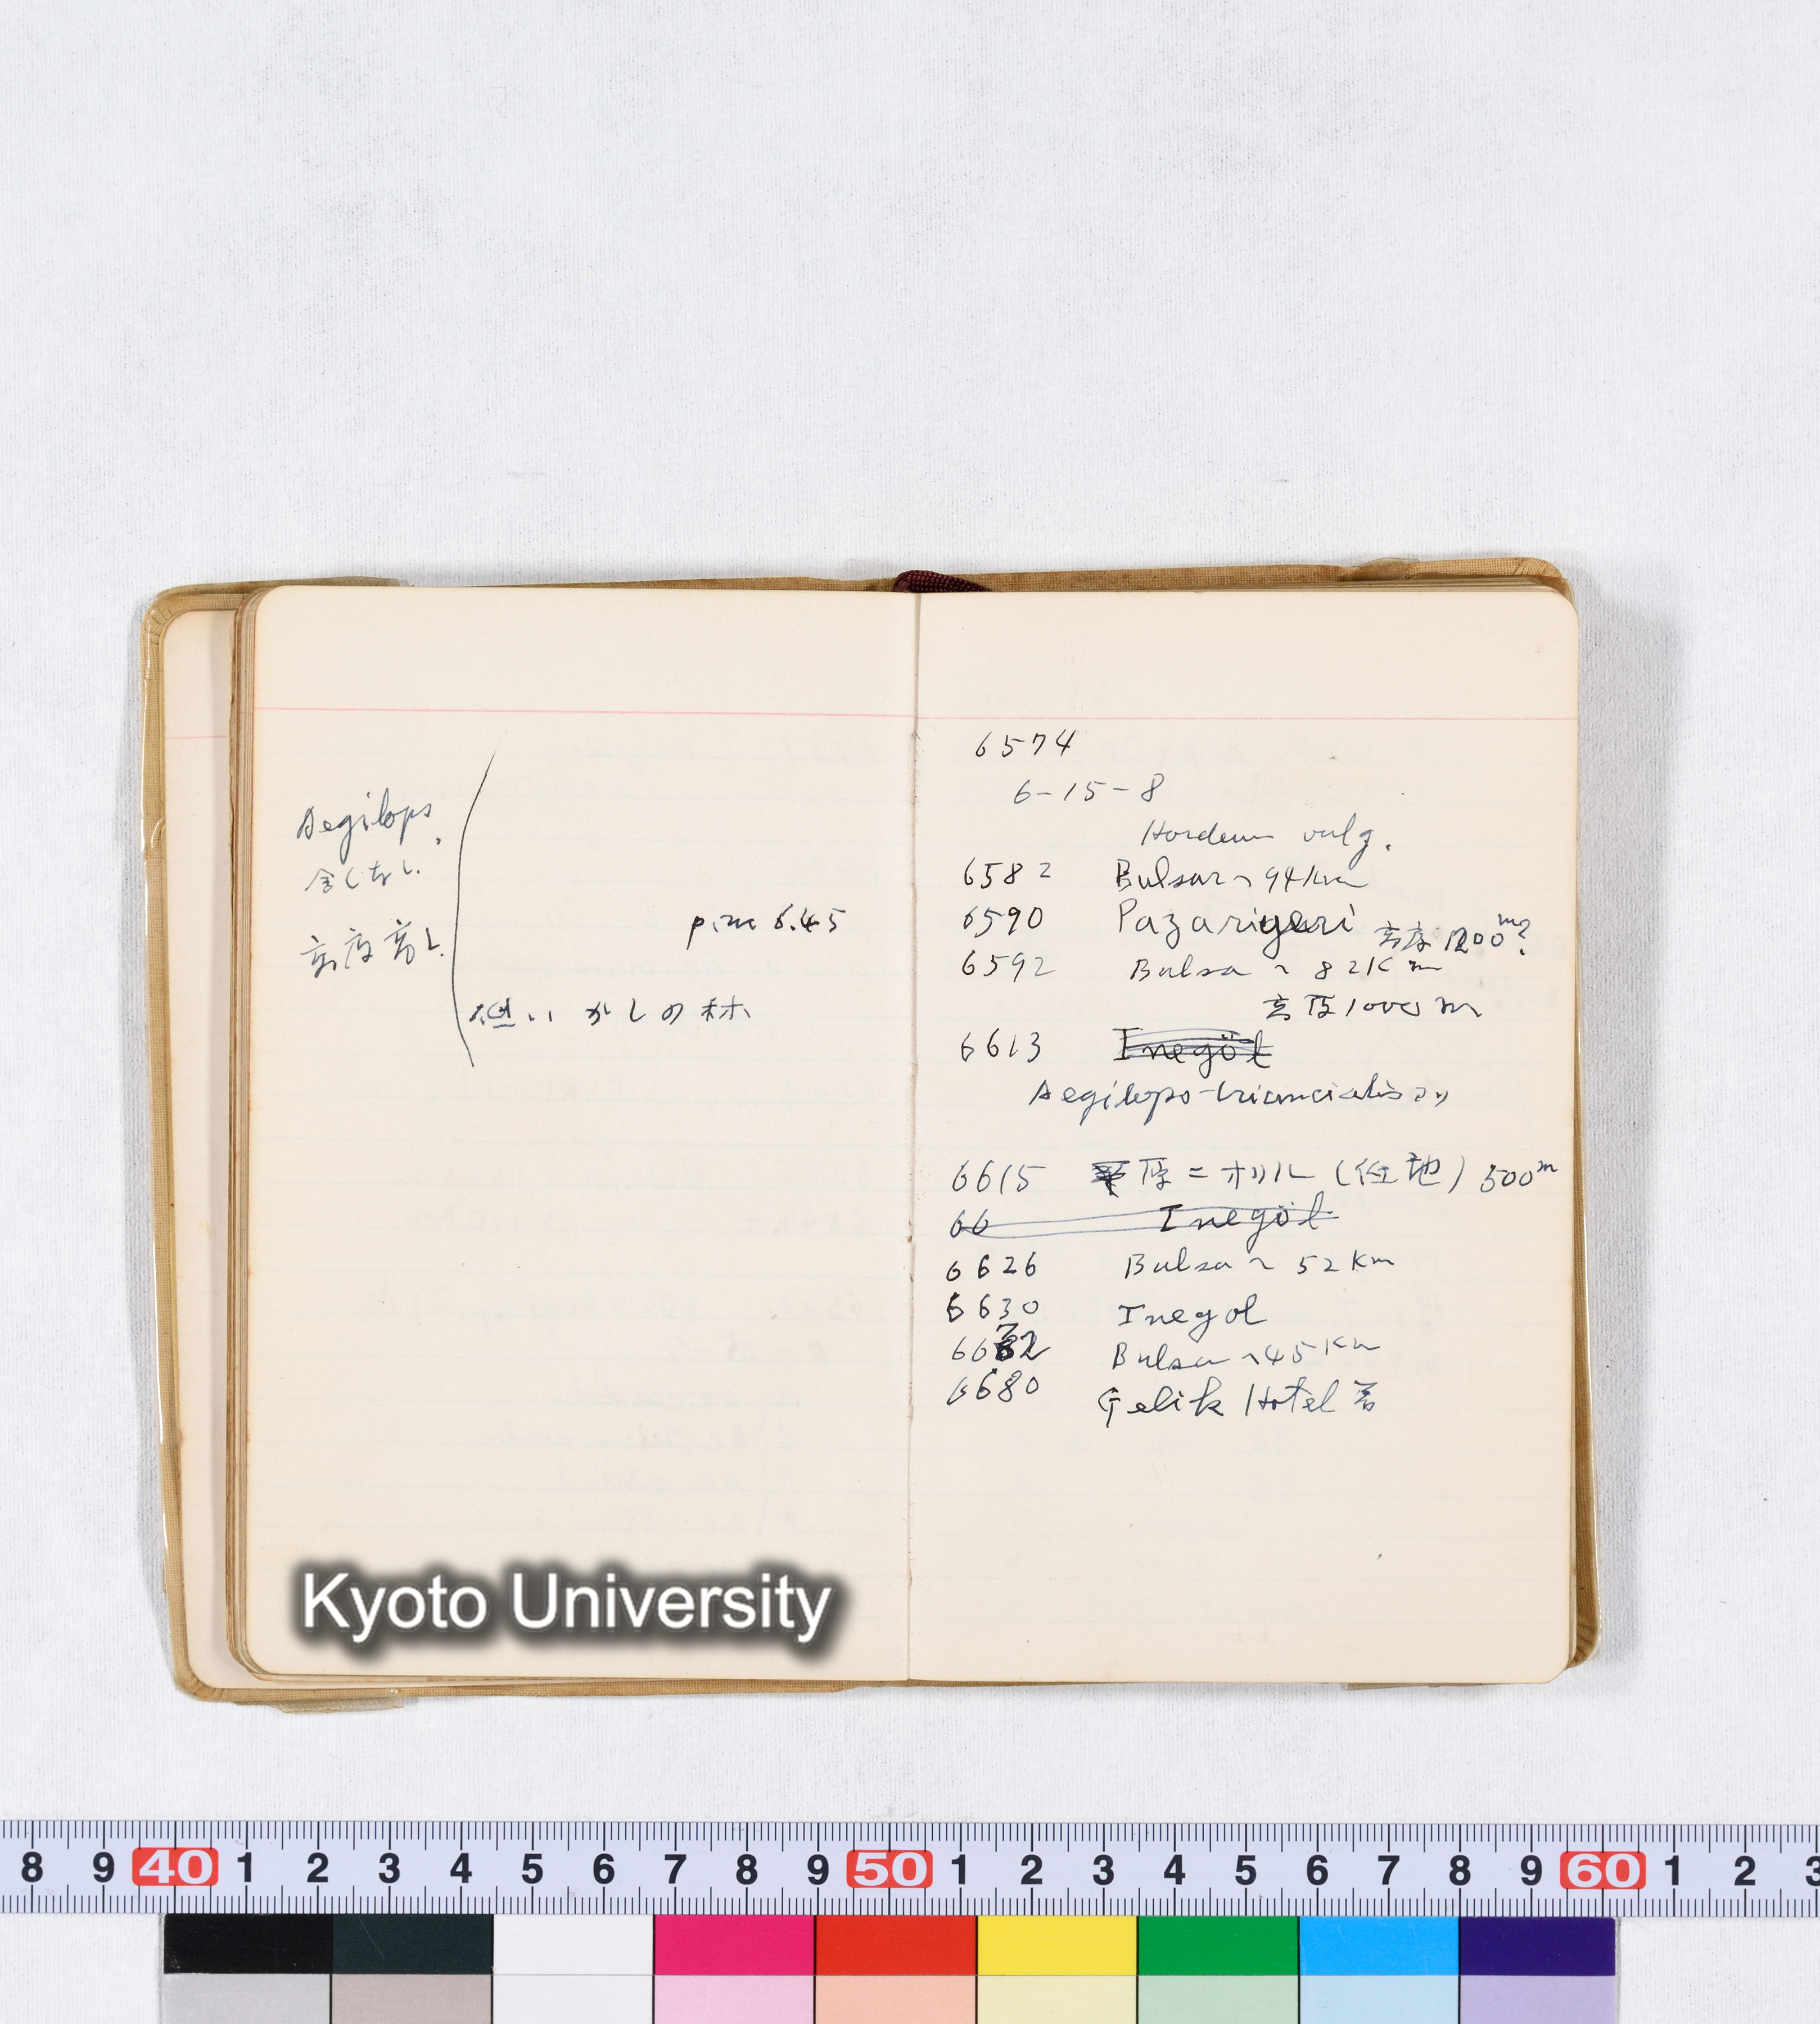 Aegilops.
全くなし.
高度高し.
p.m 6.45
低いかしの林
6574
6-15-8
Hordeum vulg.
6582 Bulsar〜94Km
6590 Pazariyeri 高度1200m?
6592 Bulsa〜82Km
高度1000m
6613 Inegöl
Aegilops-triuncialis
6615 原ニオリル(任地)500m
66 Inegöl
6626 Bulsa〜52Km
6630 Inegol
6632 Bulsa〜45Km
6680 Çelik Hotel 着
Kyoto University
8 9 40 1 2 3 4 5 6 7 8 9 50 1 2 3 4 5 6 7 8 9 60 1 2 3